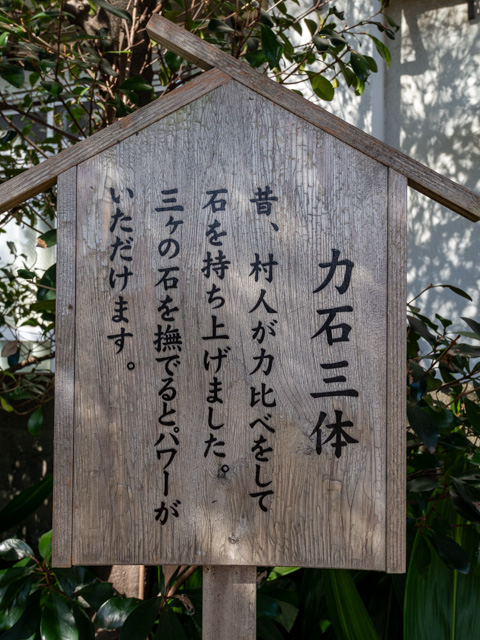 力石三体
昔、村人が力比べをして
石を持ち上げました。
三ヶの石を撫でると、パワーが
いただけます。